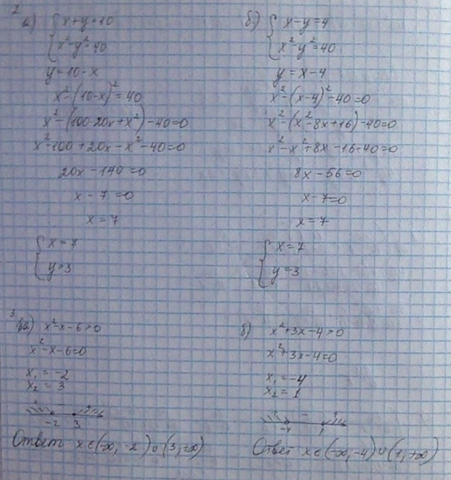 2
а) { x+y=10
x²-y²=40
y=10-x
x²-(10-x)²=40
x²-(100-20x+x²)-40=0
x²-100+20x-x²-40=0
20x-140=0
x-7=0
x=7
{ x=7
y=3
б) { x-y=4
x²-y²=40
y=x-4
x²-(x-4)²-40=0
x²-(x²-8x+16)-40=0
x²-x²+8x-16-40=0
8x-56=0
x-7=0
x=7
{ x=7
y=3
3
а) x²-x-6>0
x²-x-6=0
x₁=-2
x₂=3
-2 3
Ответ x∈(-∞, -2)∪(3,+∞)
б) x²+3x-4>0
x²+3x-4=0
x₁=-4
x₂=1
-4 1
Ответ x∈(-∞,-4)∪(1,+∞)